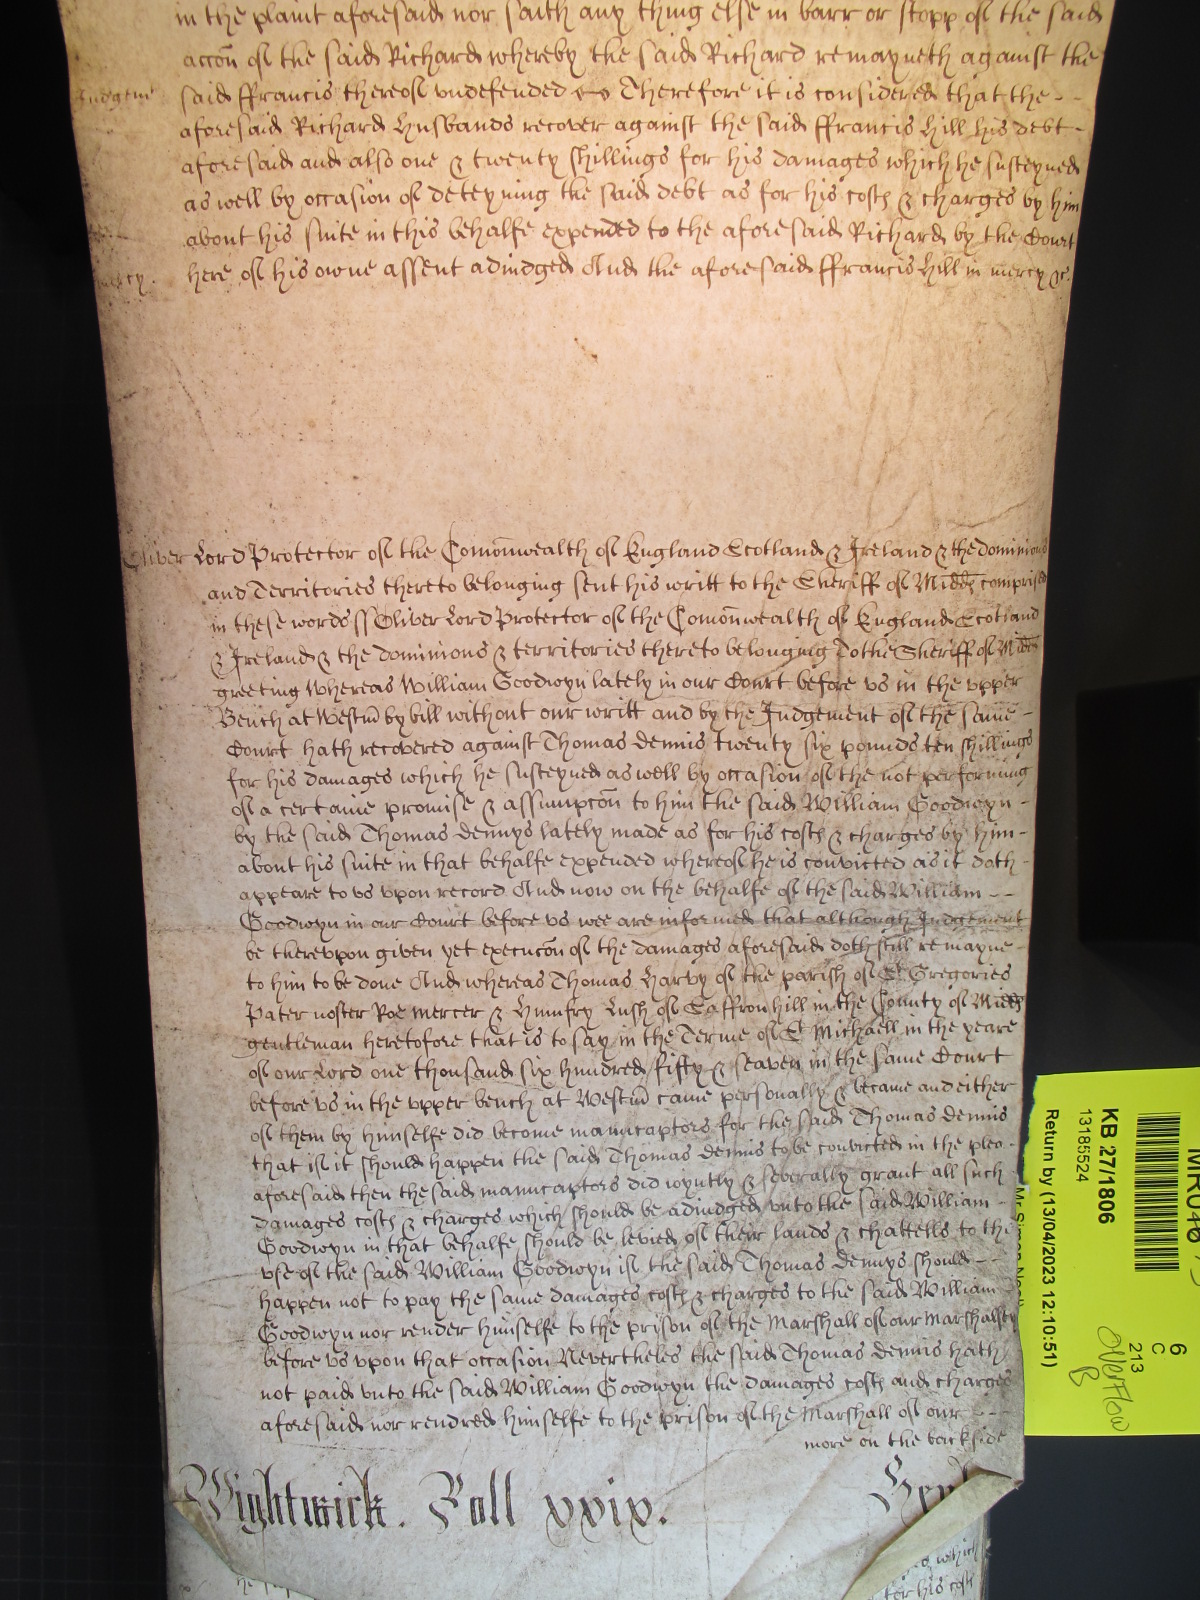 in the plaint aforesaid nor saith any thing else in barr or stopp of the said
accon̄ of the said Richard whereby the said Richard remayneth against the
Judgemt said ffrancis thereof undefended Therefore it is considered that the - -
aforesaid Richard Husbands recover against the said ffrancis Hill his debt -
aforesaid and also one & twenty shillings for his damages which he susteyned
as well by occasion of deteyning the said debt as for his costs & charges by him
about his suite in this behalfe expended to the aforesaid Richard by the Court
mercy. here of his owne assent adiudged And the aforesaid ffrancis Hill in mercy &c.
Oliver Lord Protector of the Com̄onwealth of England Scotland & Ireland & the dominions
and Territories thereto belonging sent his writt to the Sheriff of Midd̄ comprised
in these words ss Oliver Lord Protector of the Com̄onwealth of England Scotland
& Ireland & the dominions & territories thereto belonging To the Sheriff of Midd̄
greeting Whereas William Goodwyn lately in our Court before vs in the vpper
Bench at Westm̄ by bill without our writt and by the Judgement of the same -
Court hath recovered against Thomas dennis twenty six pounds ten shillings
for his damages which he susteyned as well by occasion of the not performing
of a certaine promise & assumpcōn to him the said William Goodwyn -
by the said Thomas dennys lately made as for his costs & charges by him -
about his suite in that behalfe expended whereof he is convicted as it doth -
appeare to vs vpon record And now on the behalfe of the said William - -
Goodwyn in our Court before vs wee are informed that although Judgement
be therevpon given yet execucōn of the damages aforesaid doth still remayne -
to him to be done And whereas Thomas Harvy of the parish of St Gregories
Pater noster Roe mercer & Humfry Lush of Saffron hill in the County of Midd̄
gentleman heretofore that is to say in the Terme of St Michaell in the yeare
of our Lord one thousand six hundred fifty & seaven in the same Court
before vs in the vpper bench at Westm̄ came personally & became and either
of them by himselfe did become manucaptors for the said Thomas dennis
that if it should happen the said Thomas dennis to be convicted in the plea -
aforesaid then the said manucaptors did ioyntly & severally grant all such
damages costs & charges which should be adiudged vnto the said William -
Goodwyn in that behalfe should be levied of their lands & chattells to the
vse of the said William Goodwyn if the said Thomas dennys should - -
happen not to pay the same damages costs & charges to the said William
Goodwyn nor render himselfe to the prison of the Marshall of our Marshalsey
before vs vpon that occasion Nevertheles the said Thomas dennis hath
not paid vnto the said William Goodwyn the damages costs and charges
aforesaid nor rendred himselfe to the prison of the Marshall of our - -
more on the backside
Wightwick. Roll xxix.
which
for his costs
KB 27/1806
13185524
Return by (13/04/2023 12:10:51)
6
C
213
Overflow
B